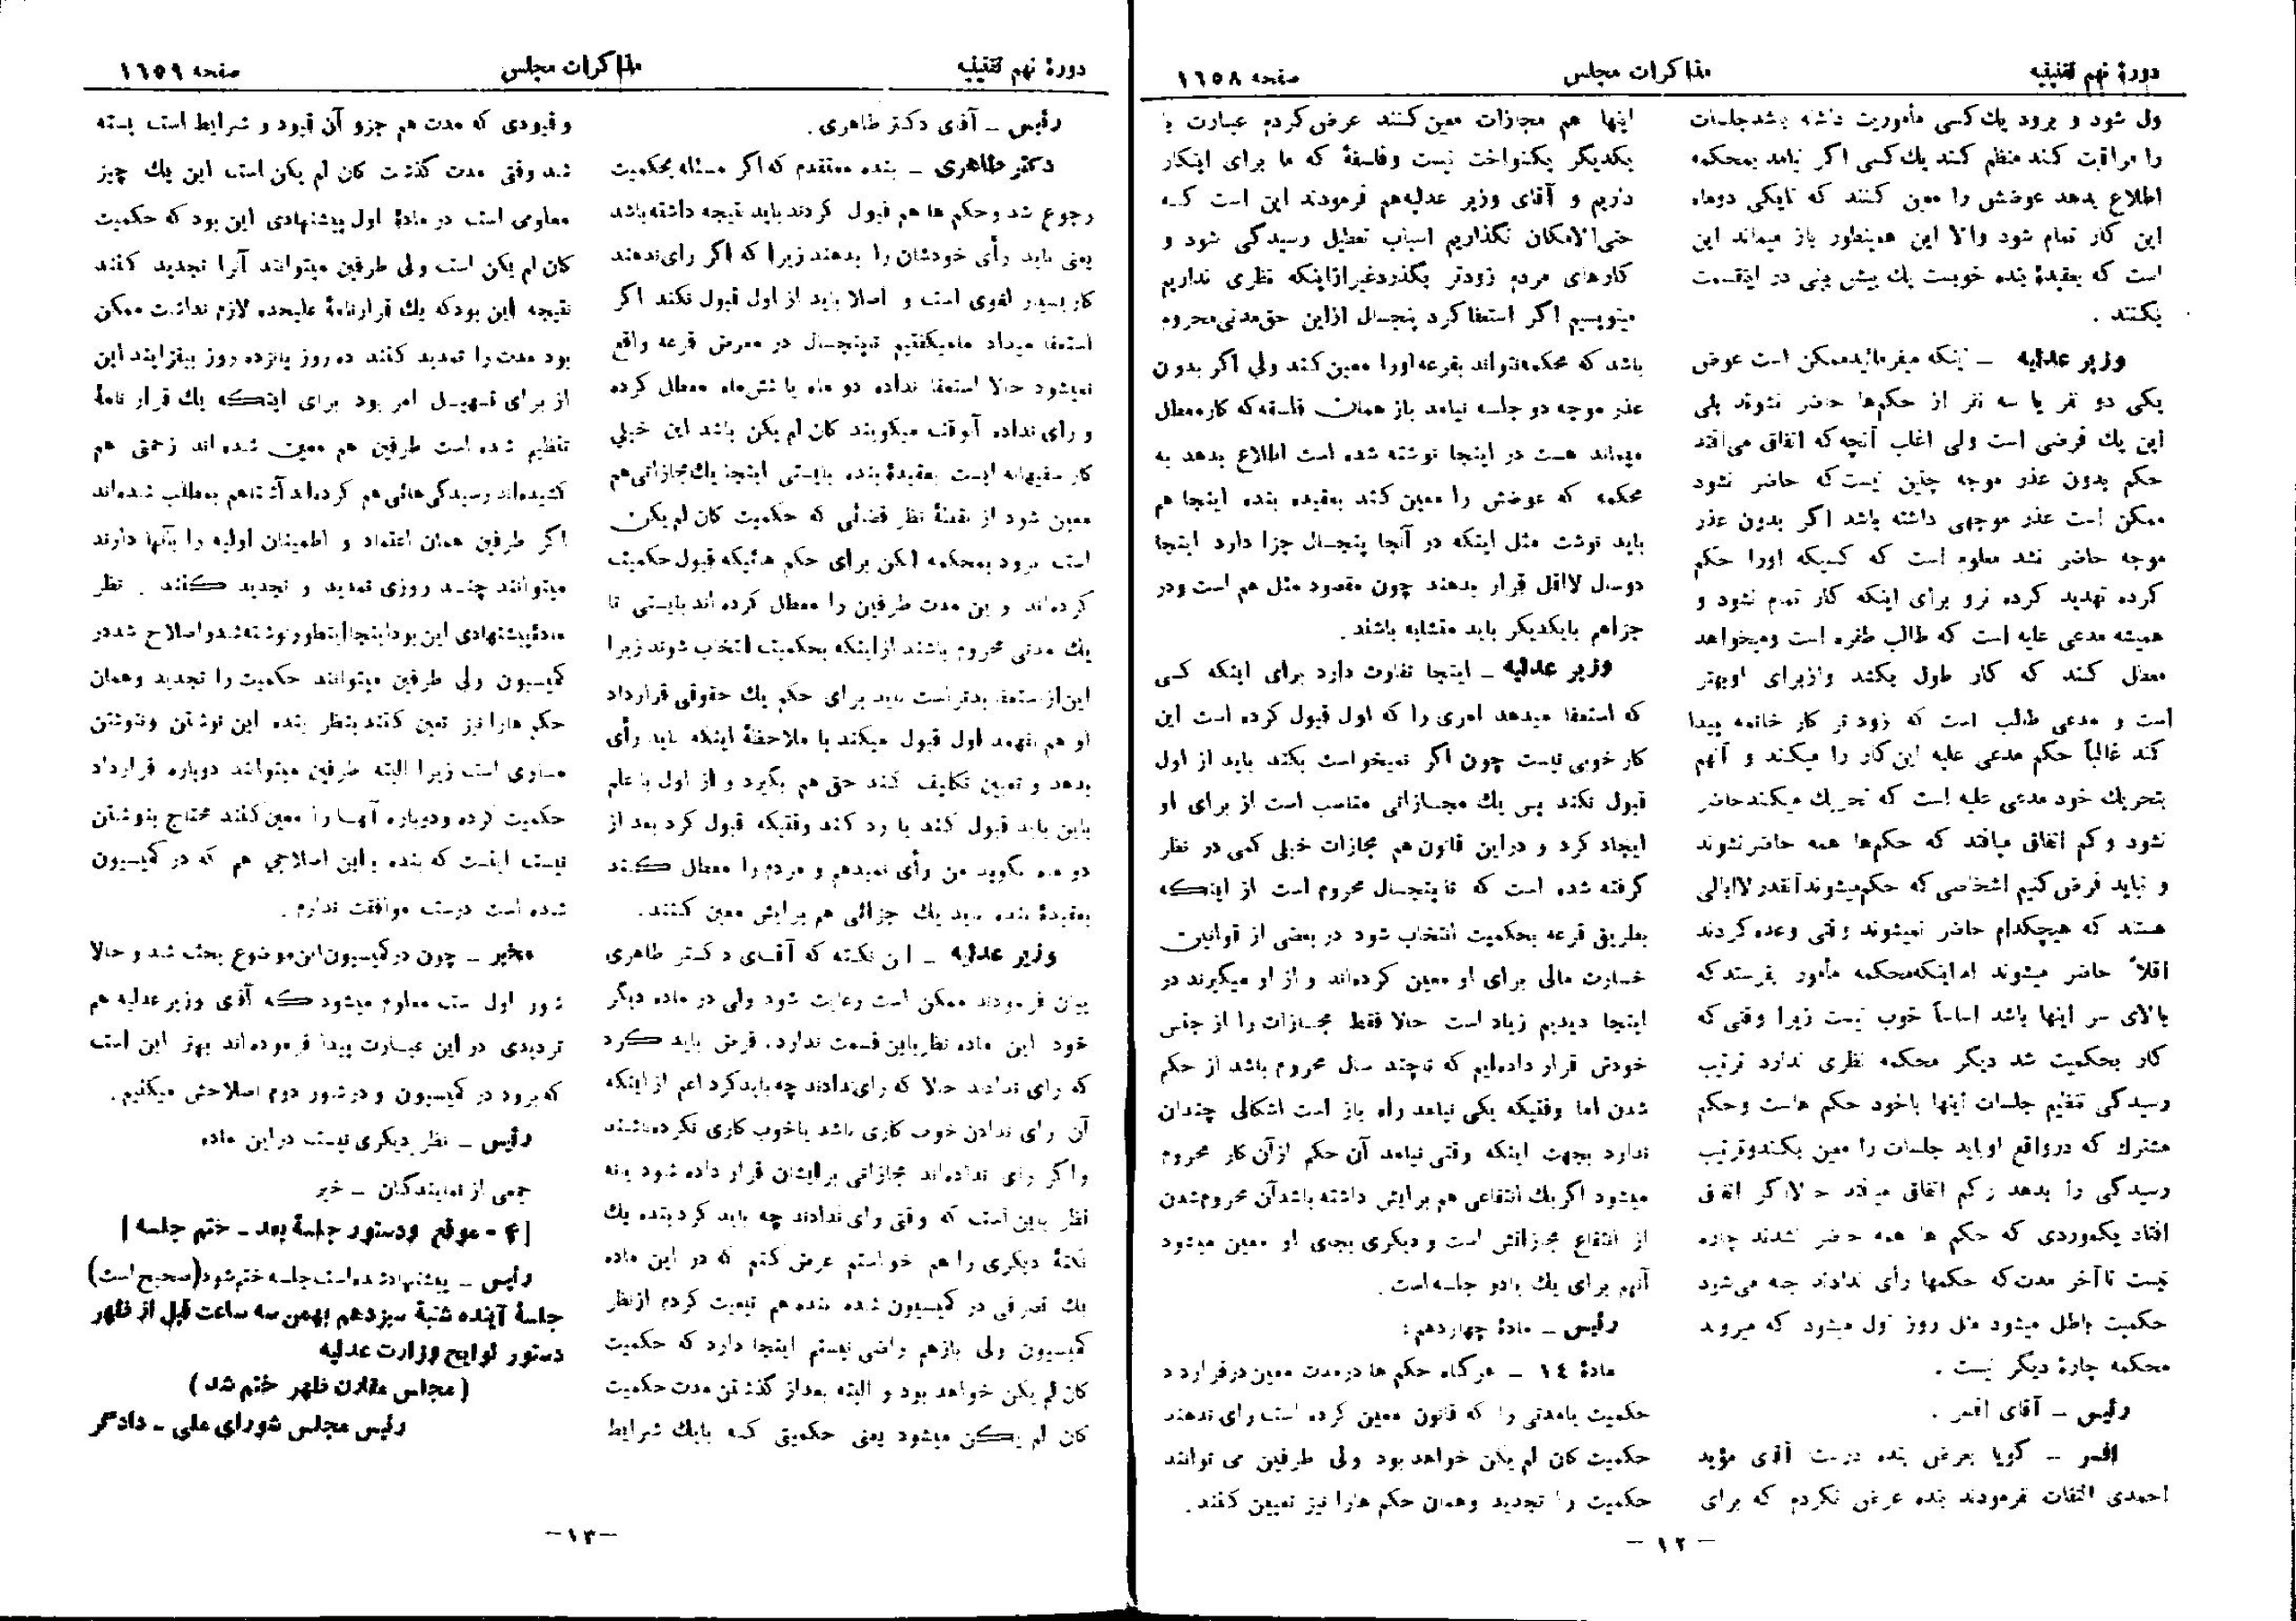 دورهٔ نهم تقنینیه
مذاکرات مجلس
صفحه ۱۶۵۸
ول شود و برود یك کسی مأموریت داشته باشد جلسات
را مراقبت کند منظم کند یك کسی اگر نیامد بمحکمه
اطلاع بدهد عوضش را معین کنند که تایکی دوماه
این کار تمام شود والا این همینطور باز میماند این
است که بعقیدهٔ بنده خوبست یك پیش بینی در اینقسمت
بکنند .
وزیر عدلیه – اینکه میفرمائید ممکن است عوض
یکی دو نفر یا سه نفر از حکم‌ها حاضر نشوند بلی
این یك فرضی است ولی اغلب آنچه که اتفاق می‌افتد
حکم بدون عذر موجه چنین نیست که حاضر نشود
ممکن است عذر موجهی داشته باشد اگر بدون عذر
موجه حاضر نشد معلوم است که کسیکه اورا حکم
کرده تهدید کرده نرو برای اینکه کار تمام نشود و
همیشه مدعی علیه است که طالب طفره است ومیخواهد
معطل کند که کار طول بکشد وازبرای اوبهتر
است و مدعی طالب است که زود تر کار خاتمه پیدا
کند غالباً حکم مدعی علیه این کار را میکند و آنهم
بتحریك خود مدعی علیه است که تحریك میکند حاضر
نشود و کم اتفاق میافتد که حکم‌ها همه حاضر نشوند
و نباید فرض کنیم اشخاصی که حکم میشوند آنقدر لاابالی
هستند که هیچکدام حاضر نمیشوند وقتی وعده کردند
اقلاً حاضر میشوند اما اینکه محکمه مأمور بفرستد که
بالای سر اینها باشد اساساً خوب نیست زیرا وقتی که
کار بحکمیت شد دیگر محکمه نظری ندارد ترتیب
رسیدگی تنظیم جلسات اینها باخود حکم هاست وحکم
مشترك که درواقع اوباید جلسات را معین بکند وترتیب
رسیدگی را بدهد و کم اتفاق میافتد حالا اگر اتفاق
افتاد یکموردی که حکم ها همه حاضر نشدند چاره
نیست تا آخر مدت که حکمها رأی ندادند چه می‌شود
حکمیت باطل میشود مثل روز اول میشود که میروند
محکمه چارهٔ دیگر نیست .
رئیس – آقای افسر .
افسر – گویا بعرض بنده درست آقای مؤید
احمدی التفات نفرمودند بنده عرض نکردم که برای
اینها هم مجازات معین کنند عرض کردم عبارت با
یکدیگر یکنواخت نیست وفلسفهٔ که ما برای اینکار
داریم و آقای وزیر عدلیه‌هم فرمودند این است که
حتی‌الامکان نگذاریم اسباب تعطیل رسیدگی شود و
کارهای مردم زودتر بگذرد غیر از اینکه نظری نداریم
مینویسیم اگر استعفا کرد پنجسال ازاین حق مدنی محروم
باشد که محکمه نتواند بقرعه اورا معین کند ولی اگر بدون
عذر موجه دو جلسه نیامد باز همان فلسفه که کار معطل
میماند هست در اینجا نوشته شده است اطلاع بدهد به
محکمه که عوضش را معین کند بعقیده بنده اینجا هم
باید نوشت مثل اینکه در آنجا پنجسال جزا دارد اینجا
دوسال لااقل قرار بدهند چون مقصود مثل هم است ودر
جزا هم بایکدیگر باید متشابه باشند .
وزیر عدلیه – اینجا تفاوت دارد برای اینکه کسی
که استعفا میدهد امری را که اول قبول کرده است این
کار خوبی نیست چون اگر نمیخواست بکند باید از اول
قبول نکند پس یك مجازاتی مناسب است از برای او
ایجاد کرد و در این قانون هم مجازات خیلی کمی در نظر
گرفته شده است که تا پنجسال محروم است از اینکه
بطریق قرعه بحکمیت انتخاب شود در بعضی از قوانین
خسارت مالی برای او معین کرده‌اند و از او میگیرند در
اینجا دیدیم زیاد است حالا فقط مجازات را از جنس
خودش قرار داده‌ایم که تاچند سال محروم باشد از حکم
شدن اما وقتیکه یکی نیامد راه باز است اشکالی چندان
ندارد بجهت اینکه وقتی نیامد آن حکم ازآن کار محروم
میشود اگر یك انتفاعی هم برایش داشته باشد آن محروم شدن
از انتفاع مجازاتش است و دیگری بجای او معین میشود
آنهم برای یك یادو جلسه است .
رئیس – مادهٔ چهاردهم :
مادهٔ ۱۴ – هرگاه حکم ها درمدت معین درقرارداد
حکمیت یامدتی را که قانون معین کرده است رای ندهند
حکمیت کان لم یکن خواهد بود ولی طرفین می توانند
حکمیت را تجدید وهمان حکم هارا نیز تعیین کنند .
– ۱۲ –
دورهٔ نهم تقنینیه
مذاکرات مجلس
صفحه ۱۶۵۹
رئیس – آقای دکتر طاهری .
دکتر طاهری – بنده معتقدم که اگر مسئله بحکمیت
رجوع شد وحکم ها هم قبول کردند باید نتیجه داشته باشد
یعنی باید رأی خودشان را بدهند زیرا که اگر رای ندهند
کار بسیار لغوی است و اصلا باید از اول قبول نکند اگر
استعفا میداد مامیگفتیم تاپنجسال در معرض قرعه واقع
نمیشود حالا استعفا نداده دو ماه یا شش‌ماه معطل کرده
و رای نداده آنوقت میگویند کان لم یکن باشد این خیلی
کار سفیهانه ایست بعقیدهٔ بنده بایستی اینجا یك مجازاتی هم
معین شود از نقطهٔ نظر قضائی که حکمیت کان لم یکن
است برود بمحکمه لکن برای حکم هائیکه قبول حکمیت
کرده‌اند و این مدت طرفین را معطل کرده اند بایستی تا
یك مدتی محروم باشند ازاینکه بحکمیت انتخاب شوند زیرا
این از استعفا بدتر است باید برای حکم یك حقوقی قرارداد
او هم بفهمد اول قبول میکند با ملاحظهٔ اینکه باید رأی
بدهد و تعیین تکلیف کند حق هم بگیرد و از اول باعلم
باین باید قبول کند یا رد کند وقتیکه قبول کرد بعد از
دو ماه بگوید من رأی نمیدهم و مردم را معطل کنند
بعقیدهٔ بنده باید یك جزائی هم برایش معین کنند .
وزیر عدلیه – این نکته که آقای دکتر طاهری
بیان فرمودند ممکن است رعایت شود ولی در ماده دیگر
خود این ماده نظر باین قسمت ندارد ، فرض باید کرد
که رای ندادند حالا که رای ندادند چه باید کرد اعم از اینکه
آن رای ندادن خوب کاری باشد یاخوب کاری نکرده باشند
واگر رای نداده‌اند مجازاتی برایشان قرار داده شود یانه
نظر باین است که وقتی رای ندادند چه باید کرد بنده یك
نکتهٔ دیگری را هم خواستم عرض کنم که در این ماده
یك تصرفی در کمیسیون شده بنده هم تبعیت کردم ازنظر
کمیسیون ولی بازهم راضی نیستم اینجا دارد که حکمیت
کان لم یکن خواهد بود و البته بعداز گذشتن مدت حکمیت
کان لم یکن میشود یعنی حکمیتی که بایك شرایط
وقیودی که مدت هم جزو آن قیود و شرایط است بسته
شد وقتی مدت گذشت کان لم یکن است این یك چیز
معلومی است در مادهٔ اول پیشنهادی این بود که حکمیت
کان لم یکن است ولی طرفین میتوانند آنرا تجدید کنند
نتیجه این بود که یك قرارنامهٔ علیحده لازم نداشت ممکن
بود مدت را تمدید کنند ده روز پانزده روز بیفزایند این
از برای تسهیل امر بود برای اینکه یك قرار نامهٔ
تنظیم شده است طرفین هم معین شده اند زحمتی هم
کشیده‌اند رسیدگی هائی هم کرده‌اند آشنا هم بمطلب شده‌اند
اگر طرفین همان اعتماد و اطمینان اولیه را بآنها دارند
میتوانند چند روزی تمدید و تجدید کنند . نظر
مادهٔ پیشنهادی این بود اینجا اینطور نوشته شد و اصلاح شد در
کمیسیون ولی طرفین میتوانند حکمیت را تجدید وهمان
حکم هارا نیز تعین کنند بنظر بنده این نوشتن ونوشتن
مساوی است زیرا البته طرفین میتوانند دوباره قرارداد
حکمیت کرده ودوباره آنها را معین کنند محتاج بنوشتن
نیست اینست که بنده باین اصلاحی هم که در کمیسیون
شده است درست موافقت ندارم .
مخبر – چون در کمیسیون این موضوع بحث شد و حالا
شور اول است معلوم میشود که آقای وزیر عدلیه هم
تردیدی در این عبارت پیدا فرموده‌اند بهتر این است
که برود در کمیسیون و درشور دوم اصلاحش میکنیم .
رئیس – نظر دیگری نیست در این ماده
جمعی از نمایندگان – خیر
[۴ – موقع ودستور جلسهٔ بعد – ختم جلسه]
رئیس – پیشنهاد شده است جلسه ختم شود (صحیح است)
جلسهٔ آینده شنبهٔ سیزدهم بهمن سه ساعت قبل از ظهر
دستور لوایح وزارت عدلیه
( مجلس مقارن ظهر ختم شد )
رئیس مجلس شورای ملی – دادگر
–۱۳–